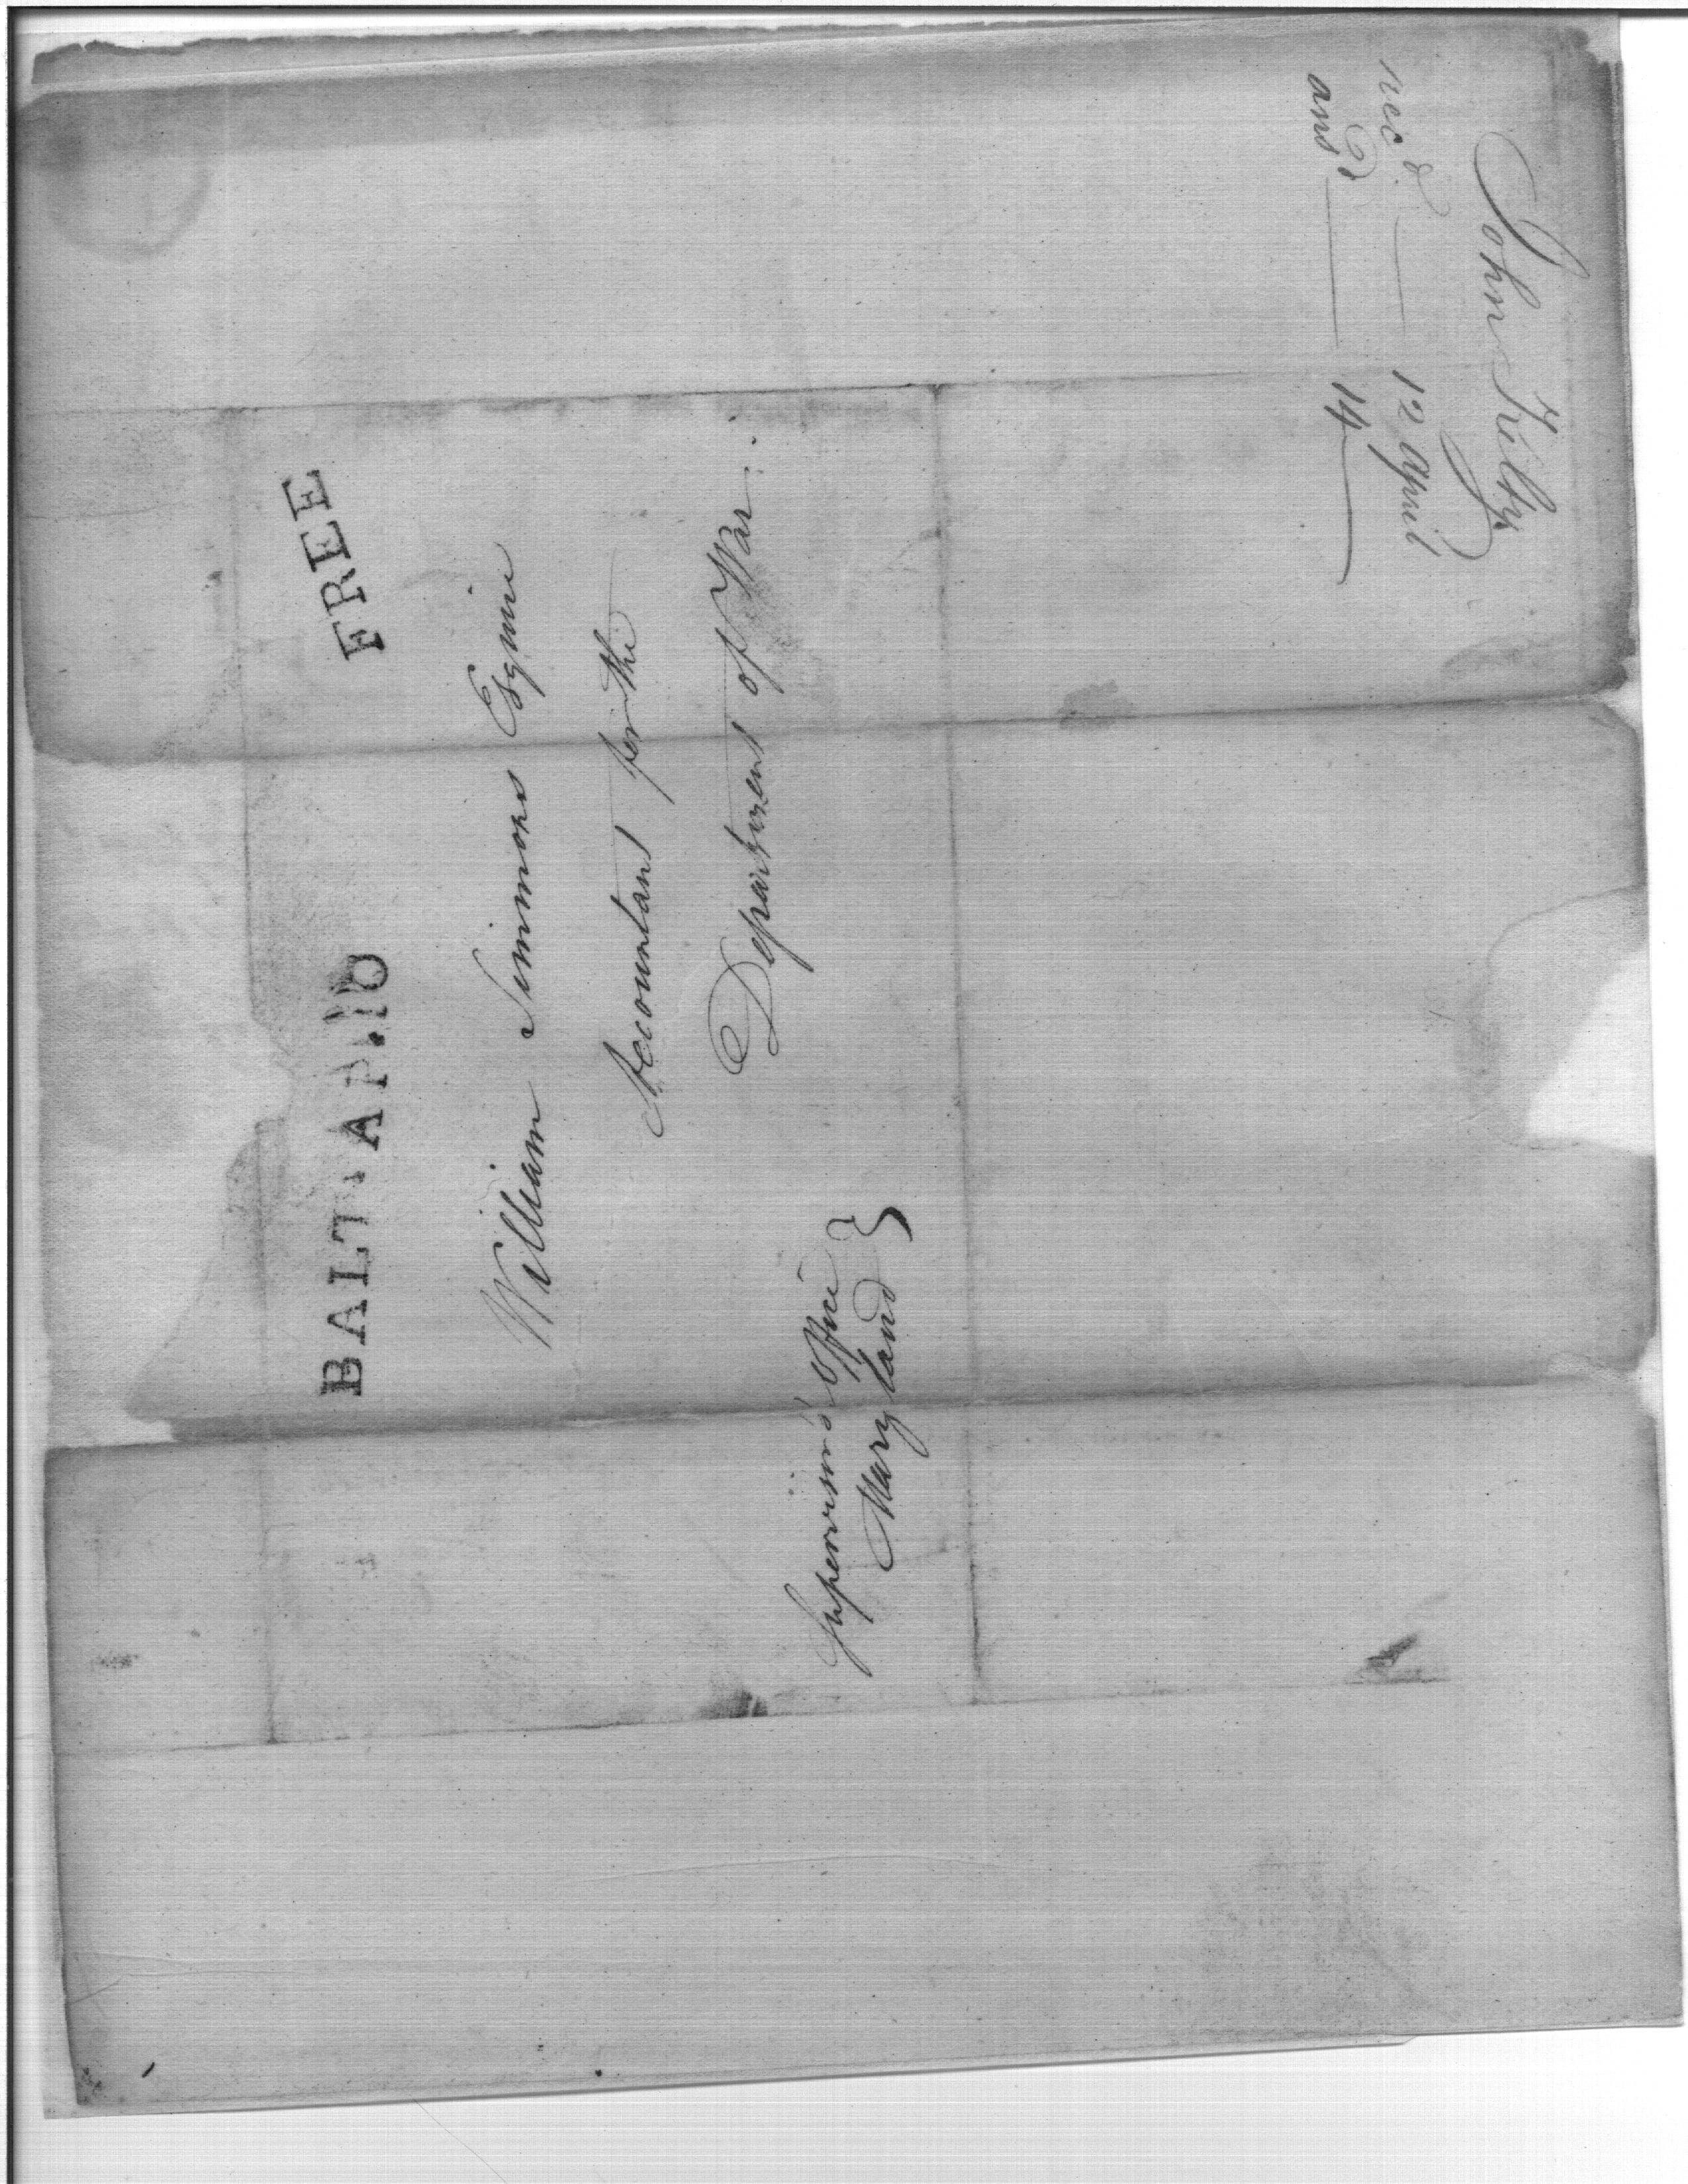 BALT AP. 10
FREE
William Simmons Esquire
Accountant for the
Department of War.
Supervisors Office }
Maryland
John Kilty
rec^d — 12 April
ans^d — 14 —